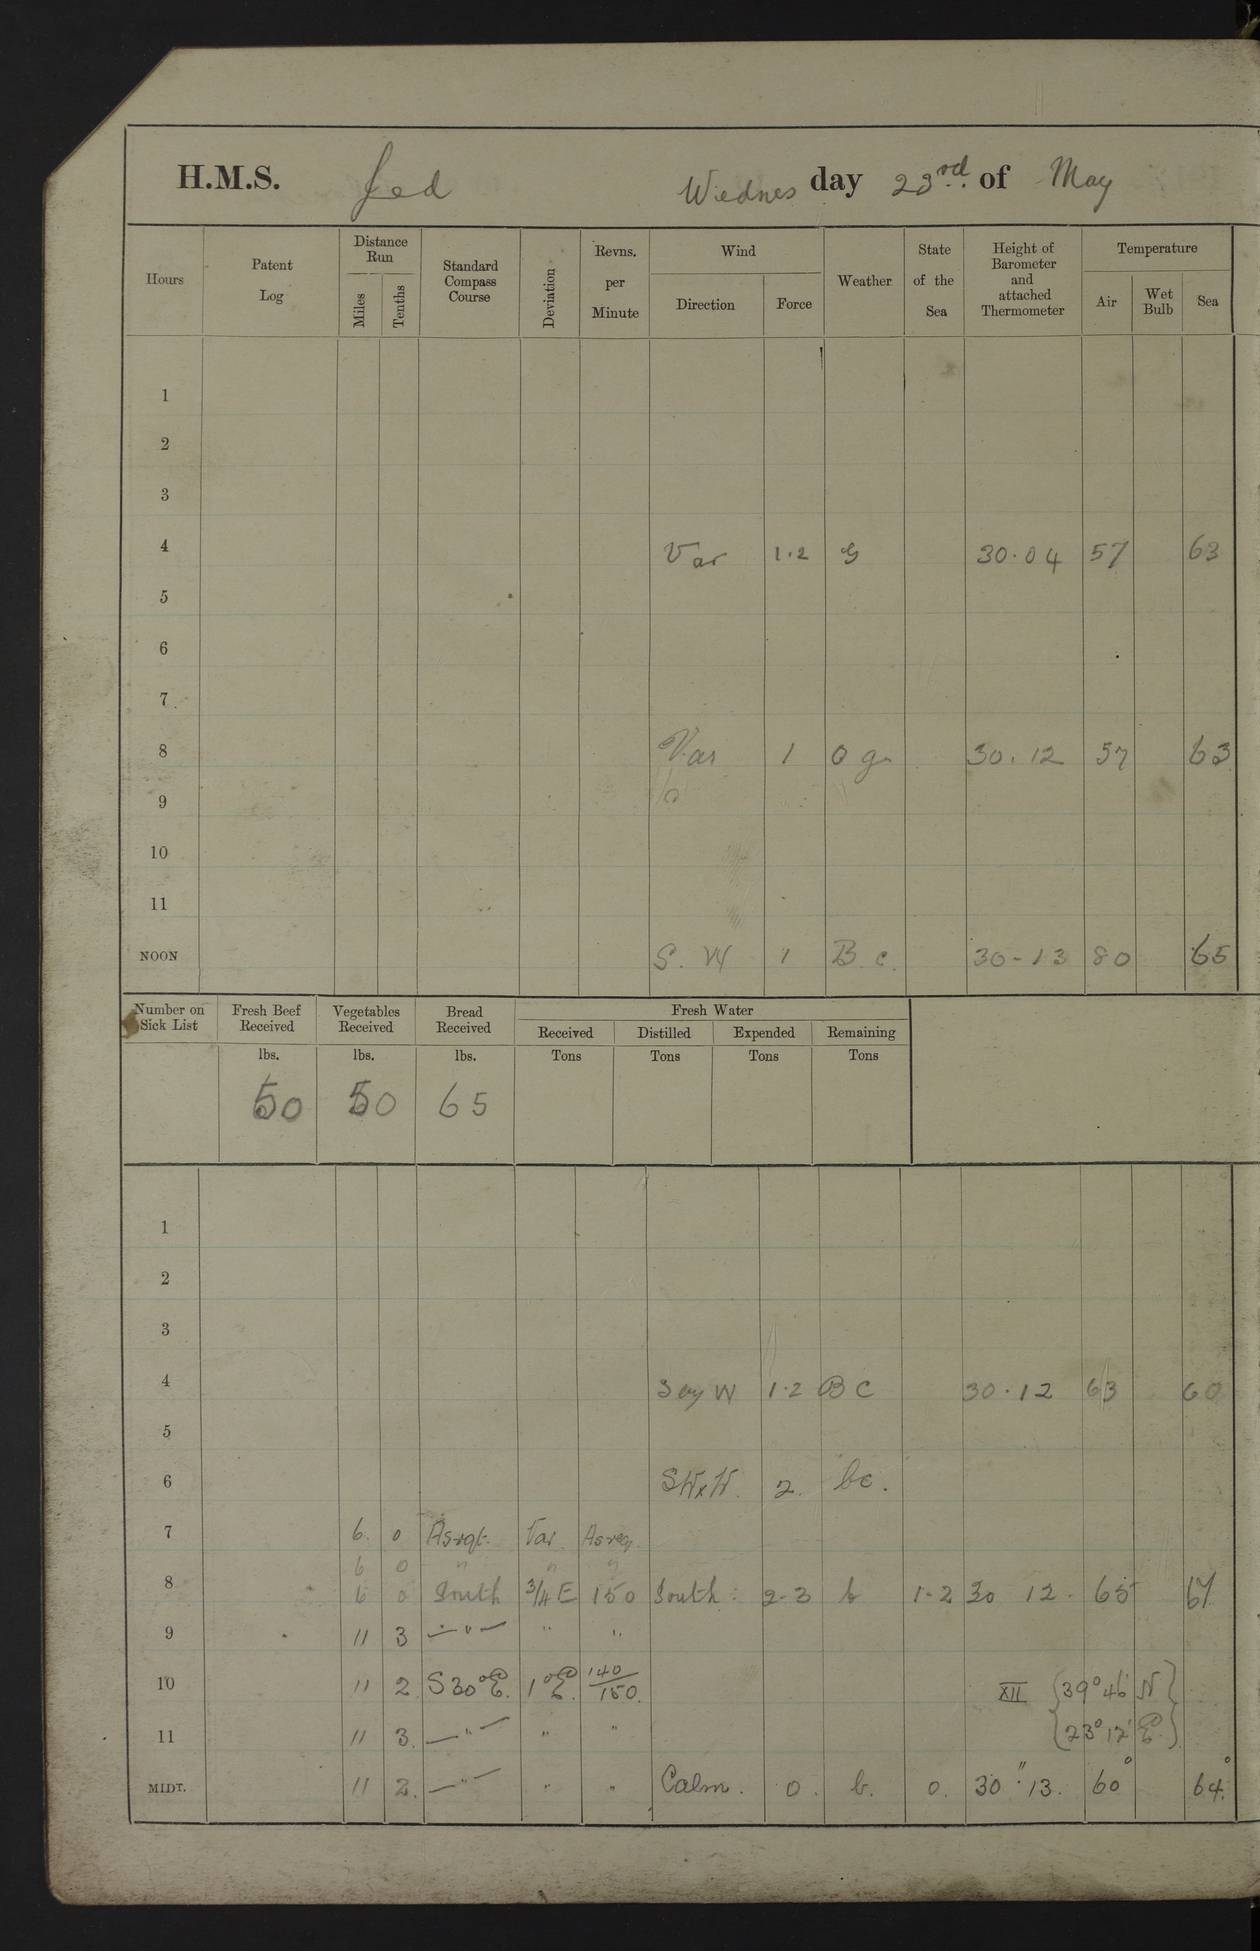 H.M.S. Jed Wiednes day 23rd of May
Hours Patent Log Distance Run Miles Tenths Standard Compass Course Deviation Revns. per Minute Wind Direction Force Weather State of the Sea Height of Barometer and attached Thermometer Temperature Air Wet Bulb Sea
1
2
3
4 Var 1.2 G 30.04 57 63
5
6
7
8 Var 1 O g 30.12 57 63
9
10
11
NOON S. W 1 B. c. 30-13 80 65
Number on Sick List Fresh Beef Received Vegetables Received Bread Received Fresh Water
Received Distilled Expended Remaining
lbs. lbs. lbs. Tons Tons Tons Tons
50 50 65
1
2
3
4 S by W 1.2 B C 30.12 63 60
5
6 SWxW. 2. bc.
7 6. 0 As rqt. Var. As req.
6 0 " " "
8 6 0 South 3/4 E 150 South 2-3 b 1-2 30 12. 65 67
9 11 3 —"— " "
10 11 2. S30°E. 1°E. 140/150. XII {39°46' N}
11 11 3. —"— " " {23°12' E.}
MIDT. 11 2. —"— " " Calm. 0. b. 0. 30".13. 60° 64.°